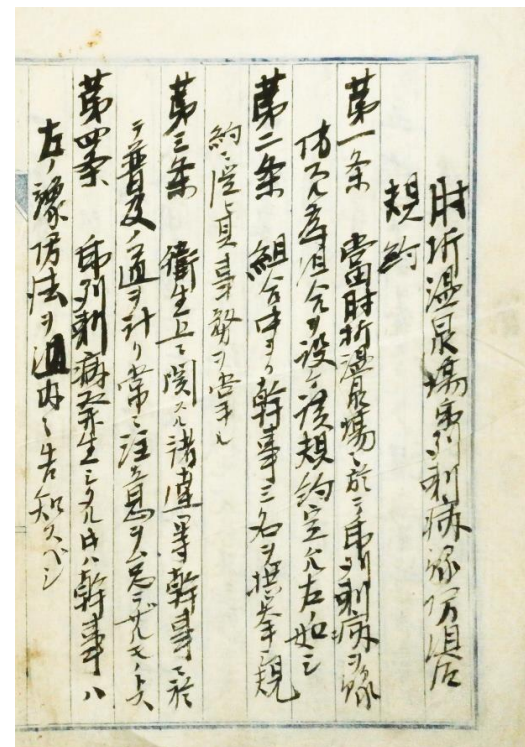 肘折温泉場虎列剌病予防組合
規約
第一条 當田肘折温泉場ニ於テ虎列剌病ヲ豫
防スル為組合ヲ設ケ該規約定ムル左ノ如シ
第二条 組合中ヨリ幹事三名ヲ撰挙シ規
約ニ従ヒ其事務ヲ掌ル
第三条 衛生上ニ関スル諸達等幹事ニ於
テ普及ノ道ヲ計リ常ニ注意ヲ忘レザルモノトス
第四条 虎列剌病発生シタル時ハ幹事ハ
左ノ豫防法ヲ組内ニ告知スベシ